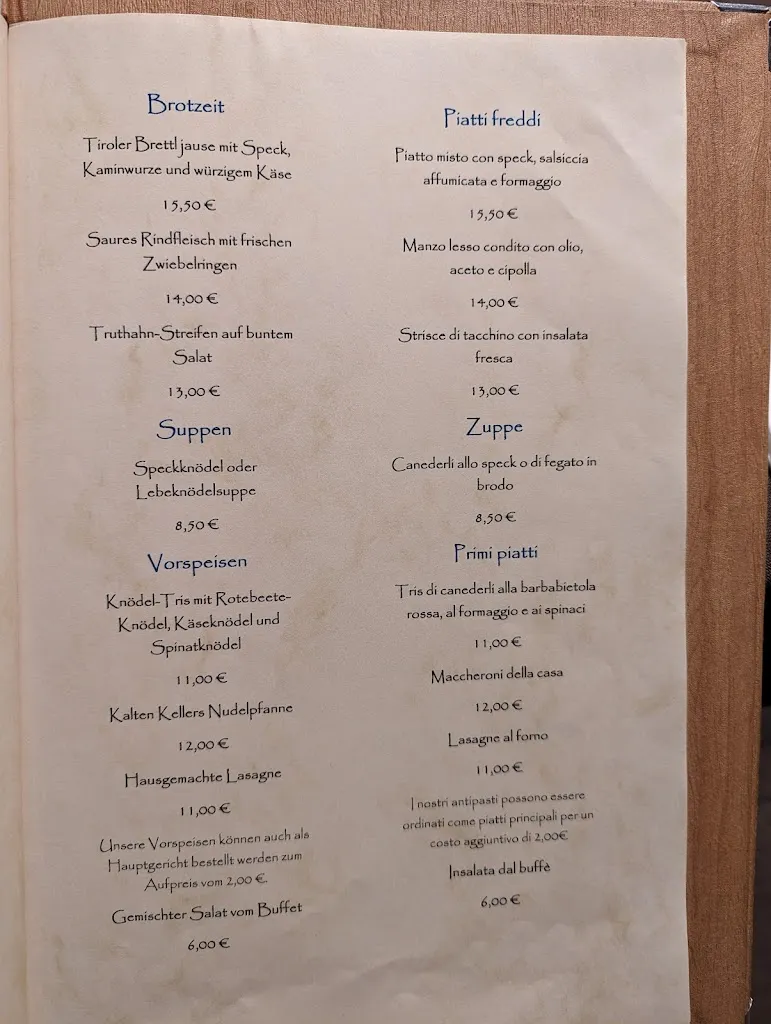 Brotzeit
Tiroler Brettljause mit Speck,
Kaminwurze und würzigem Käse
15,50 €
Saures Rindfleisch mit frischen
Zwiebelringen
14,00 €
Truthahn-Streifen auf buntem
Salat
13,00 €
Suppen
Speckknödel oder
Lebeknödelsuppe
8,50 €
Vorspeisen
Knödel-Tris mit Rotebeete-
Knödel, Käseknödel und
Spinatknödel
11,00 €
Kalten Kellers Nudelpfanne
12,00 €
Hausgemachte Lasagne
11,00 €
Unsere Vorspeisen können auch als
Hauptgericht bestellt werden zum
Aufpreis vom 2,00 €.
Gemischter Salat vom Buffet
6,00 €
Piatti freddi
Piatto misto con speck, salsiccia
affumicata e formaggio
15,50 €
Manzo lesso condito con olio,
aceto e cipolla
14,00 €
Strisce di tacchino con insalata
fresca
13,00 €
Zuppe
Canederli allo speck o di fegato in
brodo
8,50 €
Primi piatti
Tris di canederli alla barbabietola
rossa, al formaggio e ai spinaci
11,00 €
Maccheroni della casa
12,00 €
Lasagne al forno
11,00 €
I nostri antipasti possono essere
ordinati come piatti principali per un
costo aggiuntivo di 2,00€
Insalata dal buffè
6,00 €